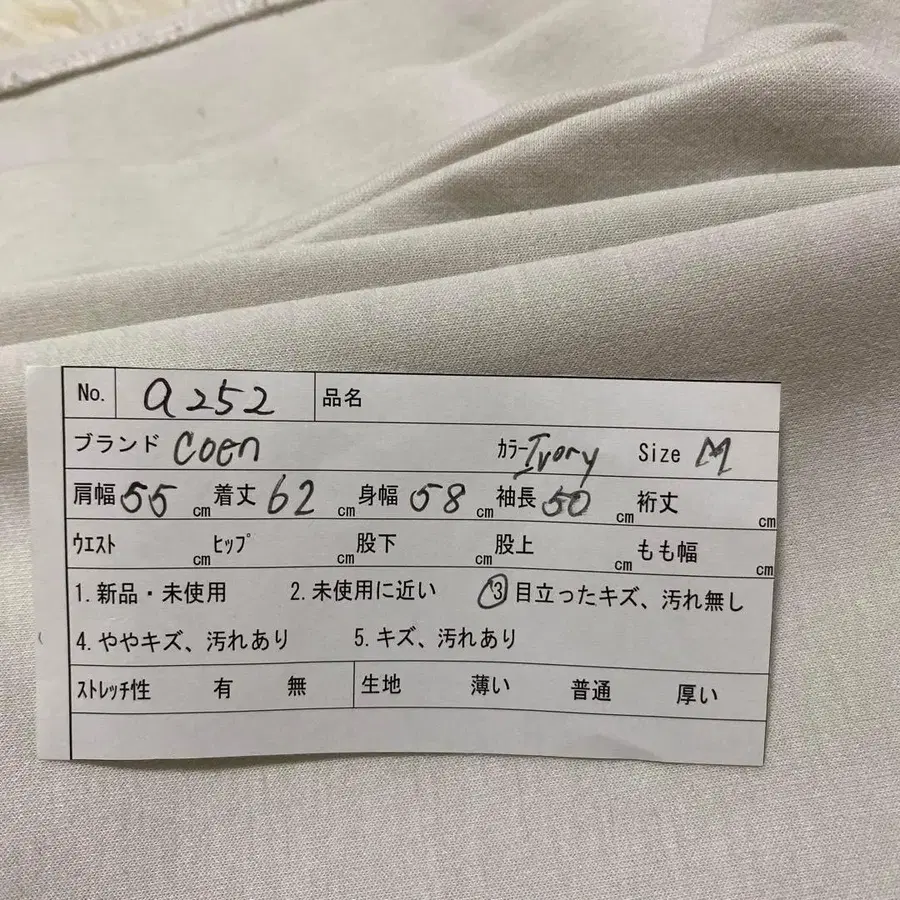 No. a252 品名
ブランド coen カラー Ivory Size M
肩幅 55 cm 着丈 62 cm 身幅 58 cm 袖長 50 cm 裄丈 cm
ウエスト cm ヒップ cm 股下 cm 股上 cm もも幅 cm
1. 新品・未使用 2. 未使用に近い ③ 目立ったキズ、汚れ無し
4. ややキズ、汚れあり 5. キズ、汚れあり
ストレッチ性 有 無 生地 薄い 普通 厚い